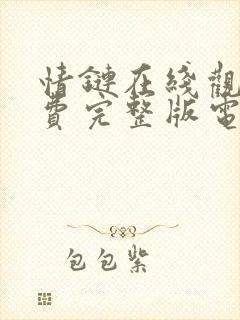 情鏈在綫觀
費完整版電
包包紫